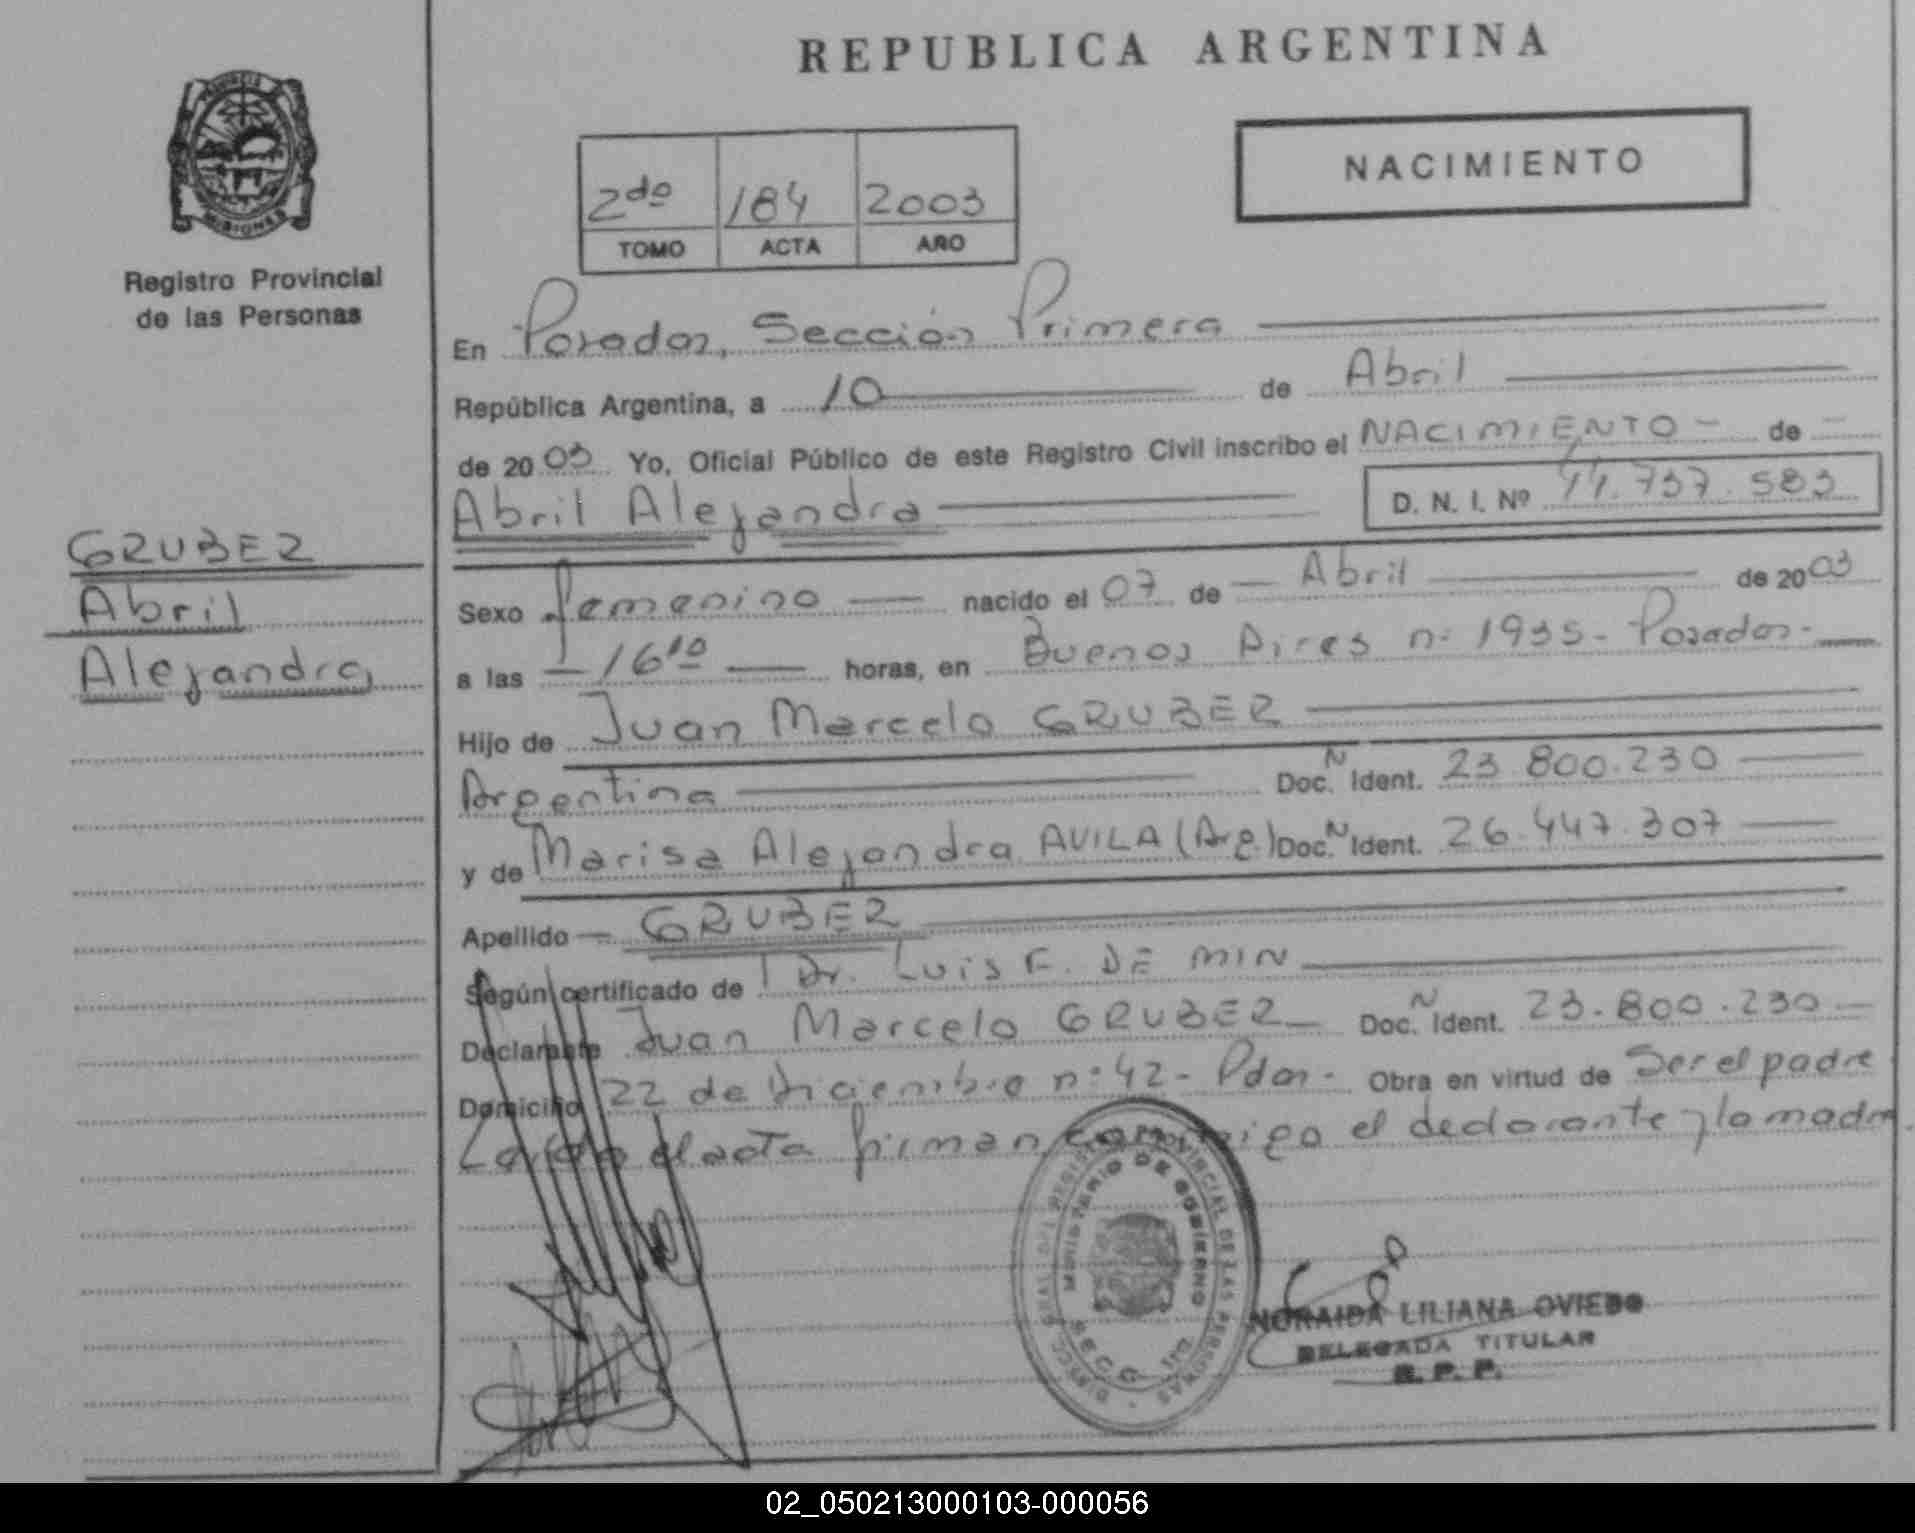 REPUBLICA ARGENTINA
NACIMIENTO
2do 184 2003
TOMO ACTA AÑO
PROVINCIA
MISIONES
Registro Provincial
de las Personas
GRUBER
Abril
Alejandra
En Posadas, Sección Primera
República Argentina, a 10 de Abril
de 2003 Yo, Oficial Público de este Registro Civil inscribo el NACIMIENTO - de -
Abril Alejandra D. N. I. Nº 44.737.583
Sexo femenino nacido el 07 de Abril de 2003
a las 16 10 horas, en Buenos Aires nº 1935 - Posadas -
Hijo de Juan Marcelo GRUBER
Argentina Doc. N Ident. 23.800.230
y de Marisa Alejandra AVILA (Arg.) Doc. N Ident. 26.447.307
Apellido GRUBER
Según certificado de Dr. Luis F. DE MIN
Declarante Juan Marcelo GRUBER Doc. N Ident. 23.800.230
Domicilio 22 de Diciembre nº 42 - Pdas - Obra en virtud de Ser el padre
Leída el acta firman conmigo el declarante y la madre.
MINISTERIO DE GOBIERNO
DIRECC. GRAL. DEL REGISTRO PROVINCIAL DE LAS PERSONAS
SECC. 1ra.
NORAIDA LILIANA OVIEDO
DELEGADA TITULAR
R. P. P.
02_050213000103-000056